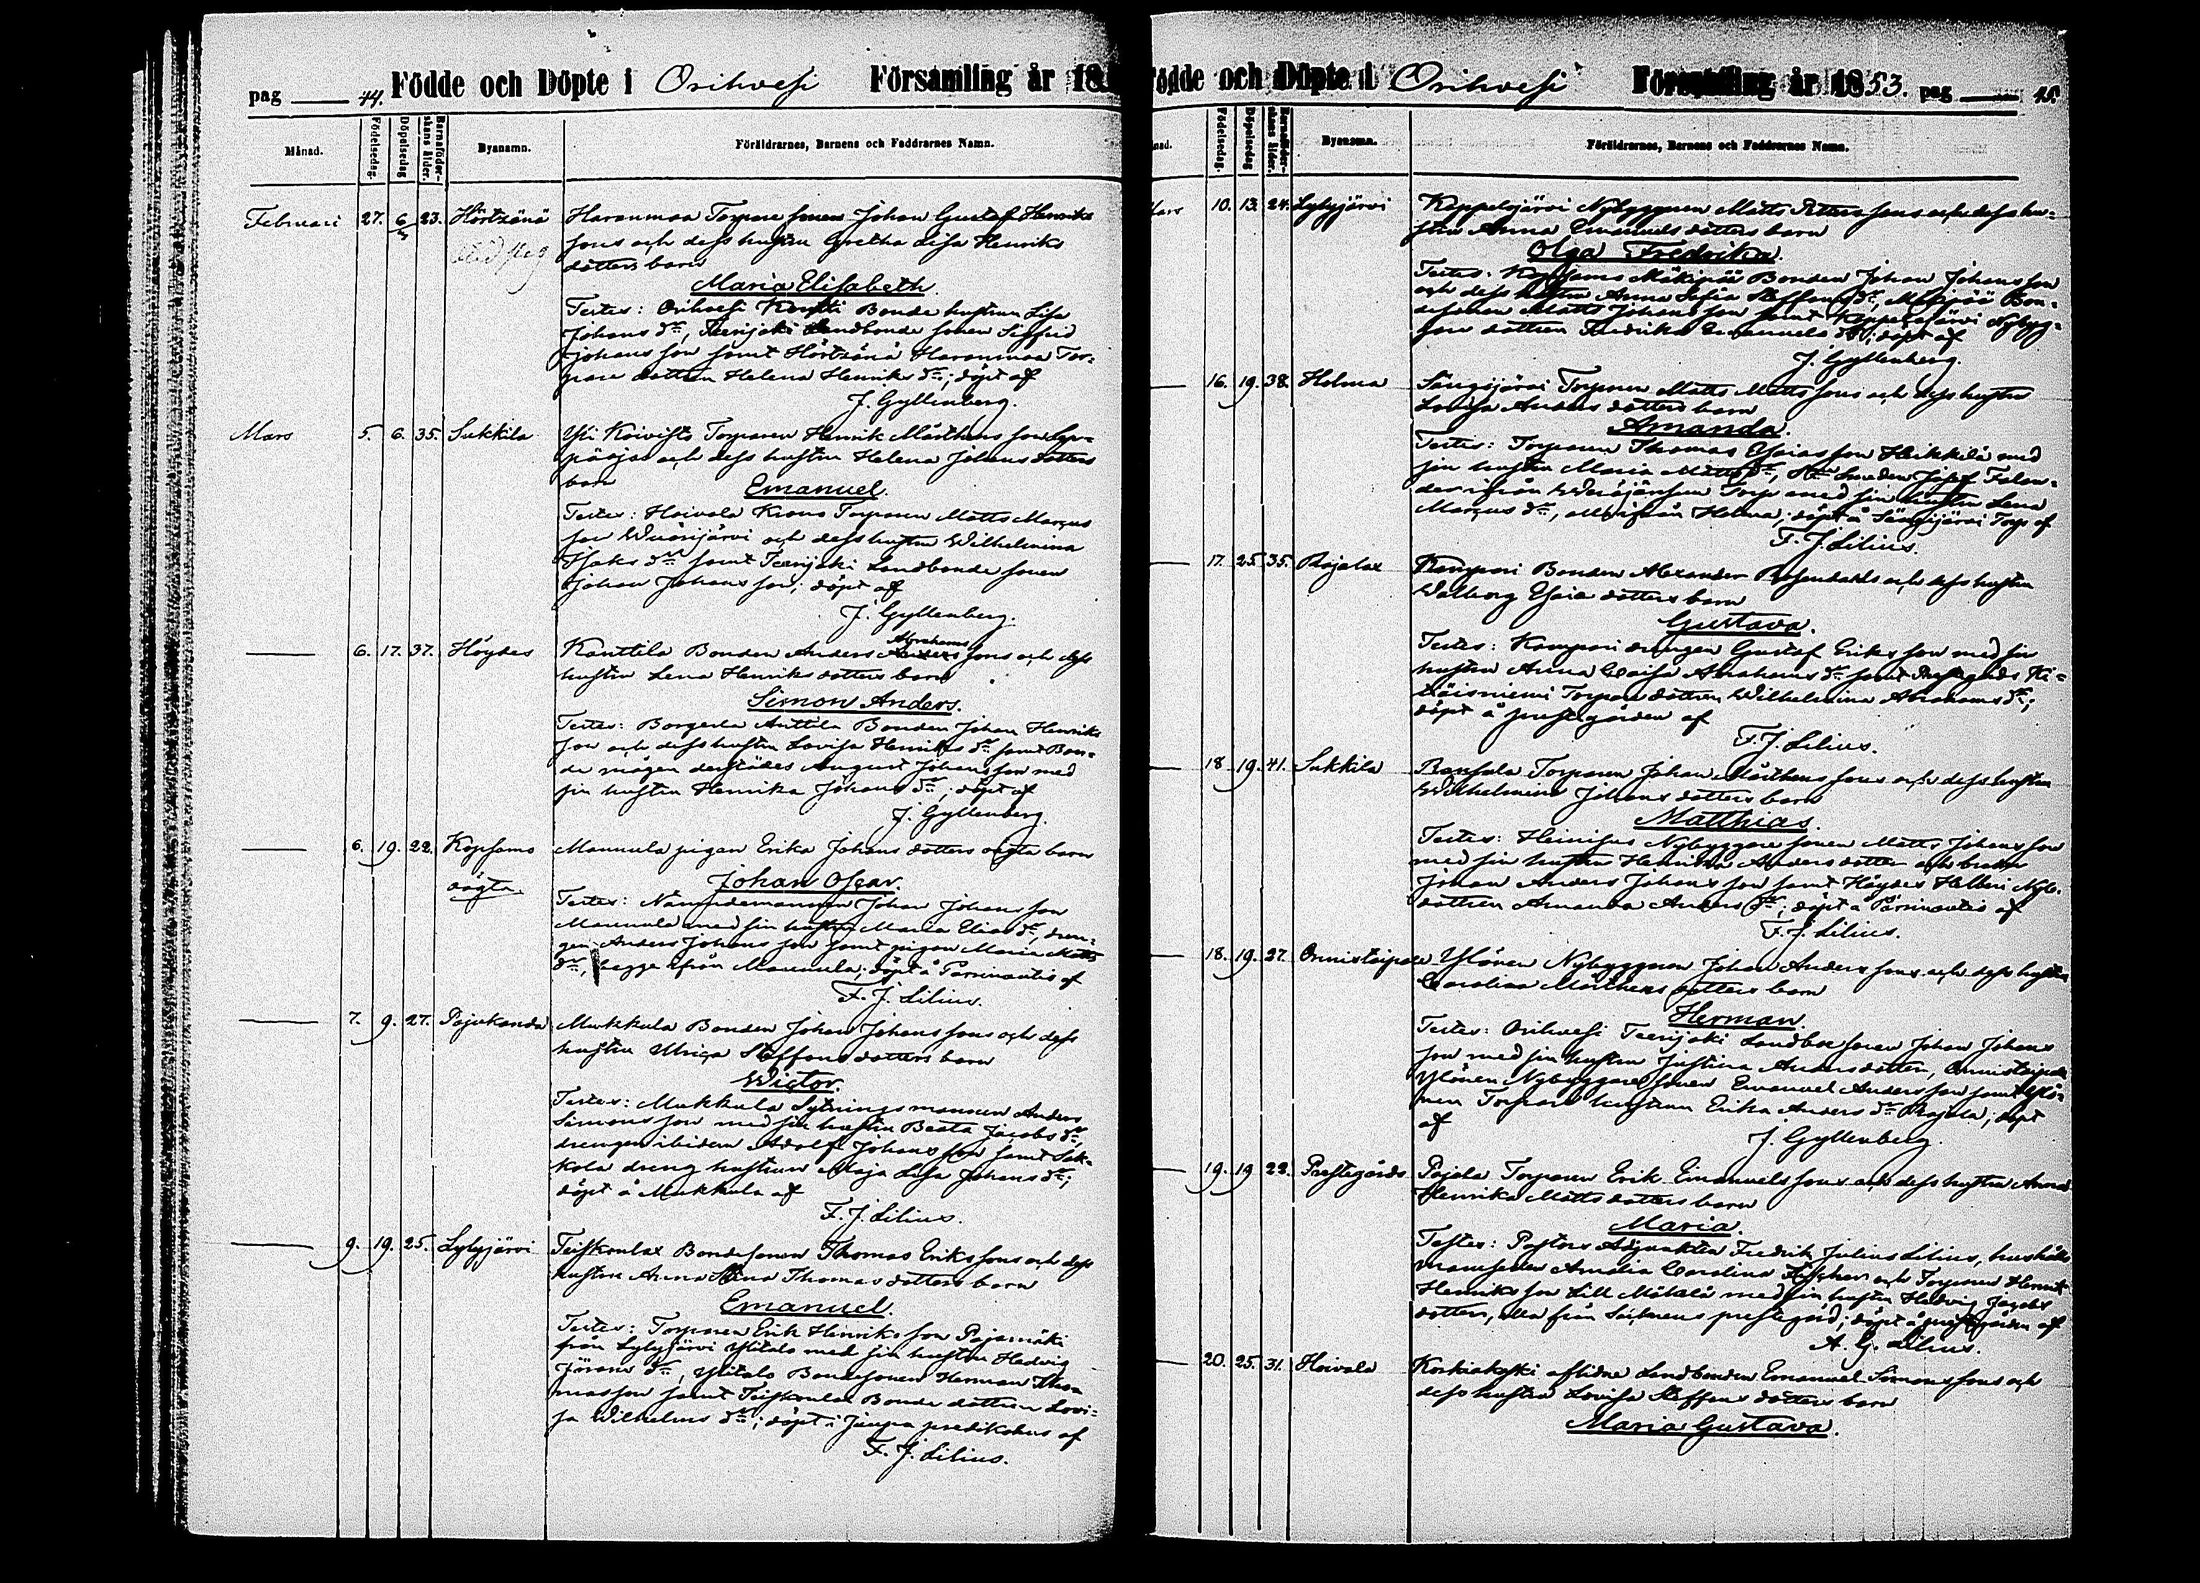 pag 44. Födde och Döpte i Orihvesi Församling år 18
Månad. Födelsedag. Döpelsedag Barnaföder-skans ålder. Byanamn. Föräldrarnes, Barnens och Faddrarnes Namn.
Februari 27. 6/3 23. Hörtzänä Haranmaa Torpare sonen Johan Gustaf Henriks
sons och dess hustru Gretha Lisa Henriks
dotters barn
Maria Elisabeth.
Testes: Orihvesi Bonde hustrun Lisa
Johans dr, Teerijoki Landbonde sonen Sigfrid
Johans son samt Hörtzänä Haranmaa Tor-
pare dottren Helena Henriks dr; döpt af
J. Gyllenberg.
Mars 5. 6. 35. Sukkila Yli Koivisto Torparen Henrik Mårthens son
och dess hustru Helena Johans dotters
barn
Emanuel.
Testes: Hoivala Krono Torparen Matts Marcus
son Wuorijärvi och dess hustru Wilhelmina
Isaks dr samt Teerijoki Landbonde sonen
Johan Johans son; döpt af
J. Gyllenberg.
6. 17. 37. Höydes Kanttila Bonden Anders Abrahams sons och dess
hustru Lena Henriks dotters barn
Simon Anders.
Testes: Borgerla Anttila Bonden Johan Henriks
son och dess hustru Lovisa Henriks dr samt Bon-
de mågen derstädes August Johans son med
sin hustru Henrika Johans dr; döpt af
J. Gyllenberg.
6. 19. 22. Kopsamo Mannula pigan Erika Johans dotters oägta barn
oägta.
Johan Oscar.
Testes: Nämndemannen Johan Johans son
Mannula med sin hustru Maria Elias dr, dren-
gen Anders Johans son samt pigan Maria Matts
dr, begge ifrån Mannula; döpt å Parsinautio af
F. J. Lilius.
7. 9. 27. Pajukanda Mukkula Bonden Johan Johans sons och dess
hustru Ulrica Steffans dotters barn
Wictor.
Testes: Mukkula Sytningsmannen Anders
Simons son med sin hustru Beata Jacobs dr,
drengen ibidem Adolf Johans son samt Sak-
kola dreng hustrun Maja Lisa Johans dr;
döpt å Mukkula af
F. J. Lilius.
9. 19. 25. Lylyjärvi Teiskonlax Bondesonen Thomas Eriks sons och dess
hustru Anna Stina Thomas dotters barn
Emanuel.
Testes: Torparen Erik Henriks son Pajamäki
från Lylyjärvi Ylitalo med sin hustru Hedvig
Jörans dr, Ylitalo Bondesonen Herman Tho-
mas son samt Teiskonlax Bonde dottren Lovi-
sa Wilhelms dr; döpt i predikohus af
F. J. Lilius.
Födde och Döpte i Orihvesi Församling år 1853. pag 45.
Födelsedag. Döpelsedag Barnaföder-skans ålder. Byanamn. Föräldrarnes, Barnens och Faddrarnes Namn.
Mars 10. 13. 24. Lylyjärvi Keppelsjärvi Nybyggaren Matts Petters sons och dess hu-
stru Anna Emanuels dotters barn
Olga Fredrika.
Testes: Kopsamo Mäkipää Bonden Johan Johans son
och dess hustru Anna Sofia Steffans dr, Mäkipää Bon-
desonen Matts Johans son samt Keppelsjärvi Nybyg-
gare dottren Fredrika Emanuels dr; döpt af
J. Gyllenberg.
16. 19. 38. Holma Sängijärvi Torparen Matts Matts sons och dess hustru
Lovisa Anders dotters barn
Amanda.
Testes: Torparen Thomas Esaias son Heikkilä med
sin hustru Maria Matts dr, Smeden Josef Falen-
der ifrån Torp med sin hustru Lena
Marcus dr, alla ifrån Holma; döpt å Sängijärvi Torp af
F. J. Lilius.
17. 25. 35. Rajalax Kampari Bonden Alexander Rosendahls och dess hustru
Walborg Esaiæ dotters barn
Gustava.
Testes: Kampari drengen Gustaf Eriks son med sin
hustru Anna Caisa Abrahams dr samt Prestegårds Hi-
Torpare dottren Wilhelmina Abrahams dr;
döpt å prestegården af
F. J. Lilius.
18. 19. 41. Sukkila Torparen Johan Mårthens sons och dess hustru
Wilhelmina Johans dotters barn
Matthias.
Testes: Heinijus Nybyggare sonen Matts Johans son
med sin hustru Henrika Anders dotter och broder
Johan Anders Johans son samt Höydes Halberi Nyb.
dottren Amanda Anders dr; döpt å Parsinautio af
F. J. Lilius.
18. 19. 27. Onnistaipale Ylönen Nybyggaren Johan Anders sons och dess hustru
Carolina Mårthens dotters barn
Herman.
Testes: Orihvesi Teerijoki Landbo sonen Johan Johans
son med sin hustru Justina Anders dotter, Onnistaipale
Ylönen Nybyggare sonen Emanuel Anders son samt Ylö-
nen Torpare hustrun Erika Anders dr Rajala; döpt
af
J. Gyllenberg.
19. 19. 22. Prestegårds Pajala Torparen Erik Emanuels sons och dess hustru Anna
Henrika Matts dotters barn
Maria.
Testes: Pastors Adjunkten Fredrik Julius Lilius, hushålls
mamsellen Amalia Carolina och Torparen Henrik
Henriks son Lill Mäkelä med sin hustru Hedvig Jacobs
dotter, alla från prestegård; döpt å prestegården af
A. G. Lilius.
20. 25. 31. Hoivala Korkiakoski aflidne Landbonden Emanuel Simons sons och
dess hustru Lovisa Steffans dotters barn
Maria Gustava.